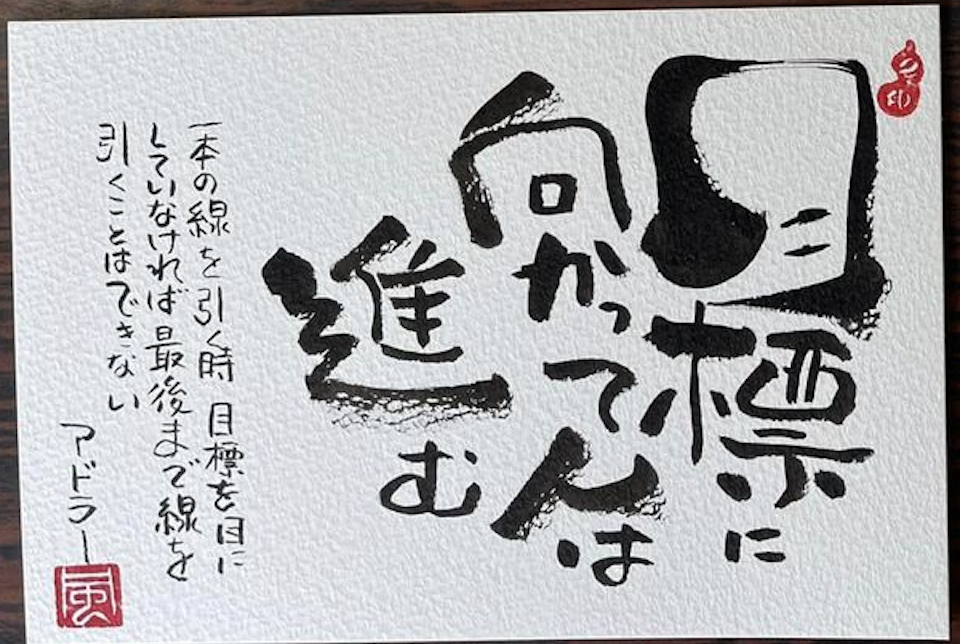 目標に
向かって人は
進む
一本の線を引く時 目標を目に
していなければ最後まで線を
引くことはできない
アドラー
風